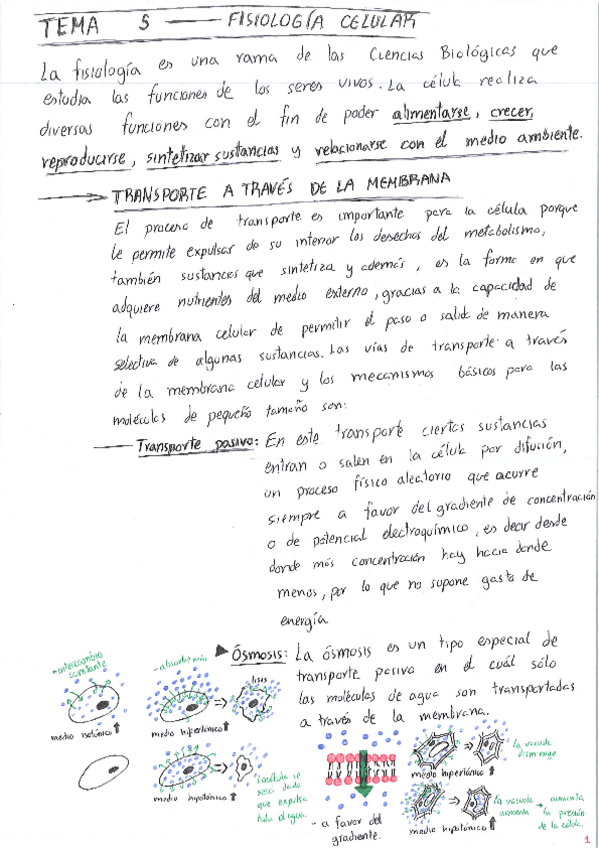 TEMA 5 — FISIOLOGÍA CELULAR
La fisiología es una rama de las Ciencias Biológicas que
estudia las funciones de los seres vivos. La célula realiza
diversas funciones con el fin de poder alimentarse, crecer,
reproducirse, sintetizar sustancias y relacionarse con el medio ambiente.
TRANSPORTE A TRAVÉS DE LA MEMBRANA
El proceso de transporte es importante para la célula porque
le permite expulsar de su interior los desechos del metabolismo,
también sustancias que sintetiza y además, es la forma en que
adquiere nutrientes del medio externo, gracias a la capacidad de
la membrana celular de permitir el paso o salida de manera
selectiva de algunas sustancias. Las vías de transporte a través
de la membrana celular y los mecanismos básicos para las
moléculas de pequeño tamaño son:
Transporte pasivo: En este transporte ciertas sustancias
entran o salen en la célula por difusión,
un proceso físico aleatorio que ocurre
siempre a favor del gradiente de concentración
o de potencial electroquímico, es decir desde
donde más concentración hay hacia donde
menos, por lo que no supone gasto de
energía
Ósmosis: La ósmosis es un tipo especial de
transporte pasivo en el cuál sólo
las moléculas de agua son transportadas
a través de la membrana.
- intercambio
constante
medio isotónico
- absorbe más
lisis
medio hipertónico
medio hipotónico
la célula se
que expulsa
toda el agua.
- a favor del
gradiente.
medio hipertónico
la vacuola
disminuye
medio hipotónico
la vacuola
aumenta → aumenta
la presión
de la célula.
1